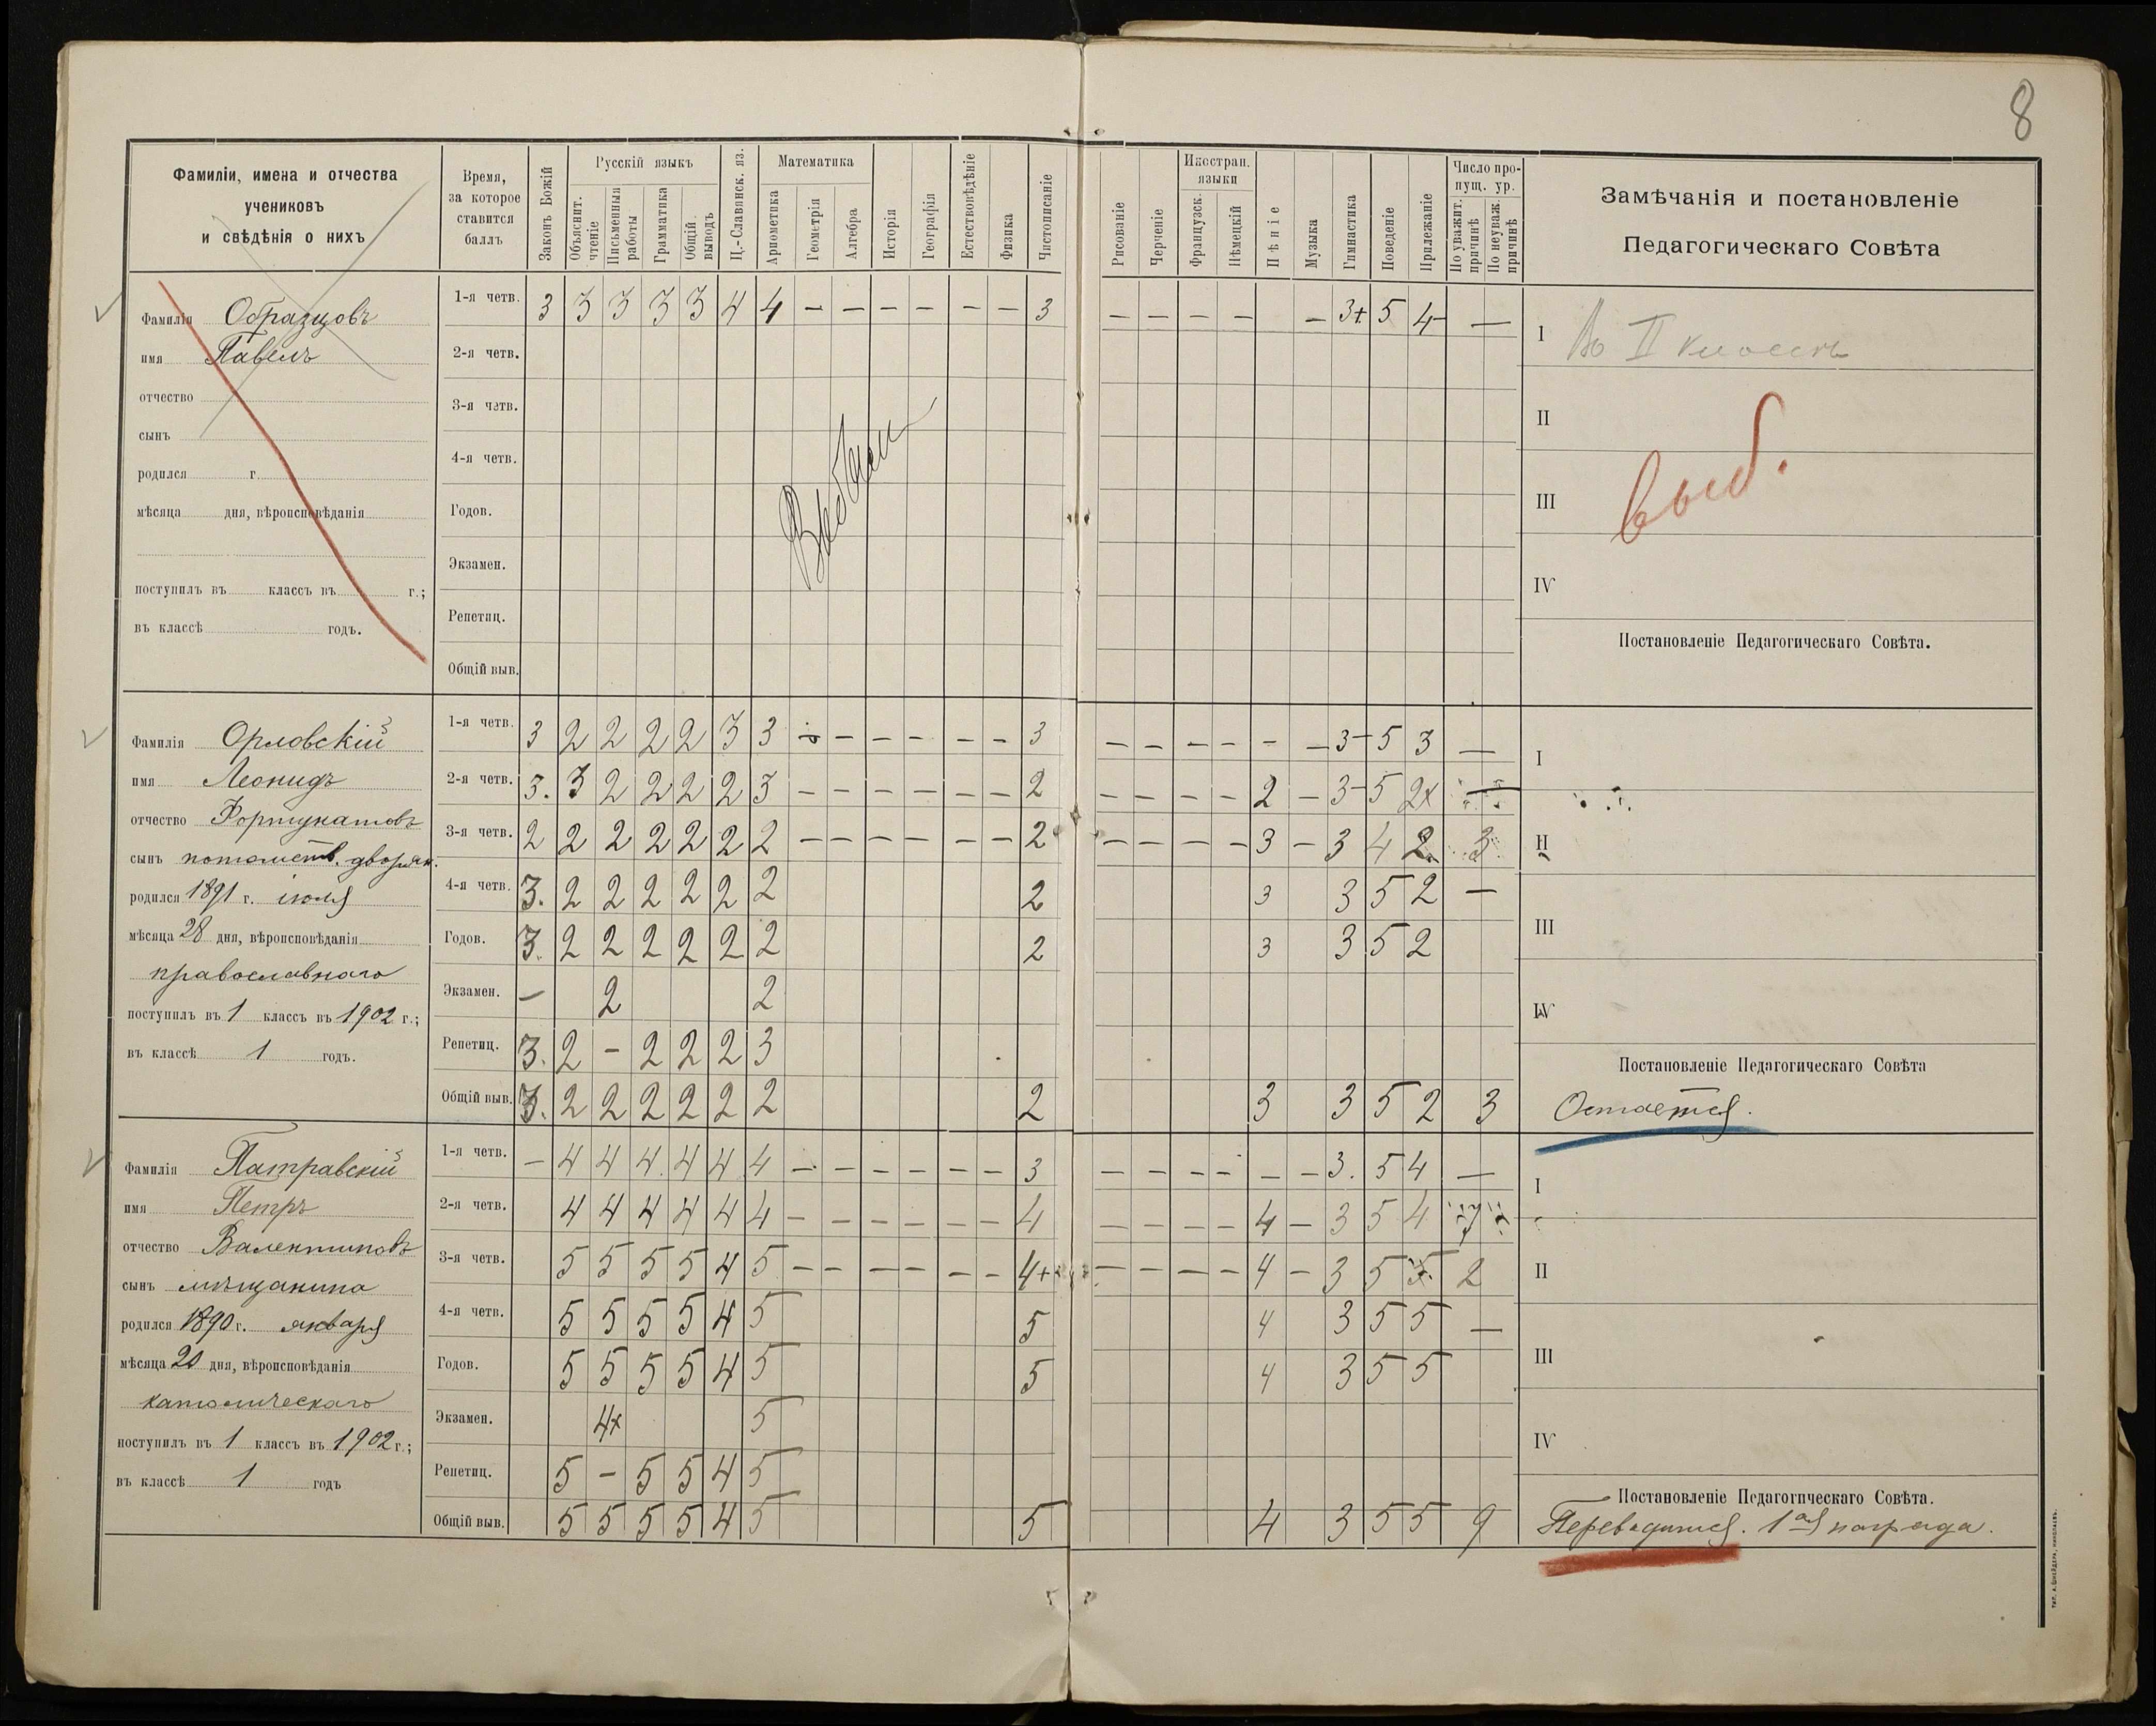 8
Фамиліи, имена и отчества
учениковъ
и свѣдѣнія о нихъ
Время,
за которое
ставится
баллъ
Законъ Божій
Русскій языкъ
Объяснит. чтеніе
Письменныя работы
Грамматика
Общій выводъ
Ц.-Славянск. яз.
Математика
Ариѳметика
Геометрія
Алгебра
Исторія
Географія
Естествовѣдѣніе
Физика
Чистописаніе
Рисованіе
Черченіе
Иностран.
языки
Французск.
Нѣмецкій
Пѣніе
Музыка
Гимнастика
Поведеніе
Прилежаніе
Число про-
пущ. ур.
По уважит. причинѣ
По неуваж. причинѣ
Замѣчанія и постановленіе
Педагогическаго Совѣта
Фамилія Образцовъ
имя Павелъ
отчество
сынъ
родился г.
мѣсяца дня, вѣроисповѣданія
поступилъ въ классъ въ г.;
въ классѣ годъ.
1-я четв. 3 3 3 3 3 4 4 — — — — — — 3 — — — — — 3+ 5 4 —
2-я четв.
3-я четв.
4-я четв.
Годов.
Экзамен.
Репетиц.
Общій выв.
I Во II классъ
II
выб.
III
IV
Постановленіе Педагогическаго Совѣта.
Фамилія Орловскій
имя Леонидъ
отчество Фортунатовъ
сынъ потомств. дворян.
родился 1891 г. іюля
мѣсяца 28 дня, вѣроисповѣданія
православнаго
поступилъ въ 1 классъ въ 1902 г.;
въ классѣ 1 годъ.
1-я четв. 3 2 2 2 2 3 3 — — — — — — 3 — — — — — — 3- 5 3 —
2-я четв. 3. 3 2 2 2 2 3 — — — — — — 2 — — — — 2 — 3- 5 2x —
3-я четв. 2 2 2 2 2 2 2 — — — — — — 2 — — — — 3 — 3 4 2. 3
4-я четв. 3. 2 2 2 2 2 2 2 3 3 5 2 —
Годов. 3. 2 2 2 2 2 2 2 3 3 5 2
Экзамен. — 2 2
Репетиц. 3. 2 — 2 2 2 3
Общій выв. 3. 2 2 2 2 2 2 2 3 3 5 2 3
I
II
III
IV
Постановленіе Педагогическаго Совѣта
Остается.
Фамилія Патравскій
имя Петръ
отчество Валентиновъ
сынъ мѣщанина
родился 1890 г. января
мѣсяца 20 дня, вѣроисповѣданія
католическаго
поступилъ въ 1 классъ въ 1902 г.;
въ классѣ 1 годъ
1-я четв. — 4 4 4 4 4 4 — — — — — — 3 — — — — — — 3. 5 4 —
2-я четв. 4 4 4 4 4 4 — — — — — — 4 — — — — 4 — 3 5 4 7
3-я четв. 5 5 5 5 4 5 — — — — — — 4+ — — — — 4 — 3 5 5 2
4-я четв. 5 5 5 5 4 5 5 4 3 5 5 —
Годов. 5 5 5 5 4 5 5 4 3 5 5
Экзамен. 4x 5
Репетиц. 5 — 5 5 4 5
Общій выв. 5 5 5 5 4 5 5 4 3 5 5 9
I
II
III
IV
Постановленіе Педагогическаго Совѣта.
Переводится. 1ая награда.